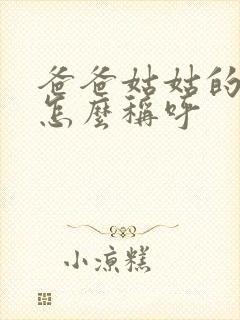 爸爸姑姑的
怎麼稱呼
小涼糕